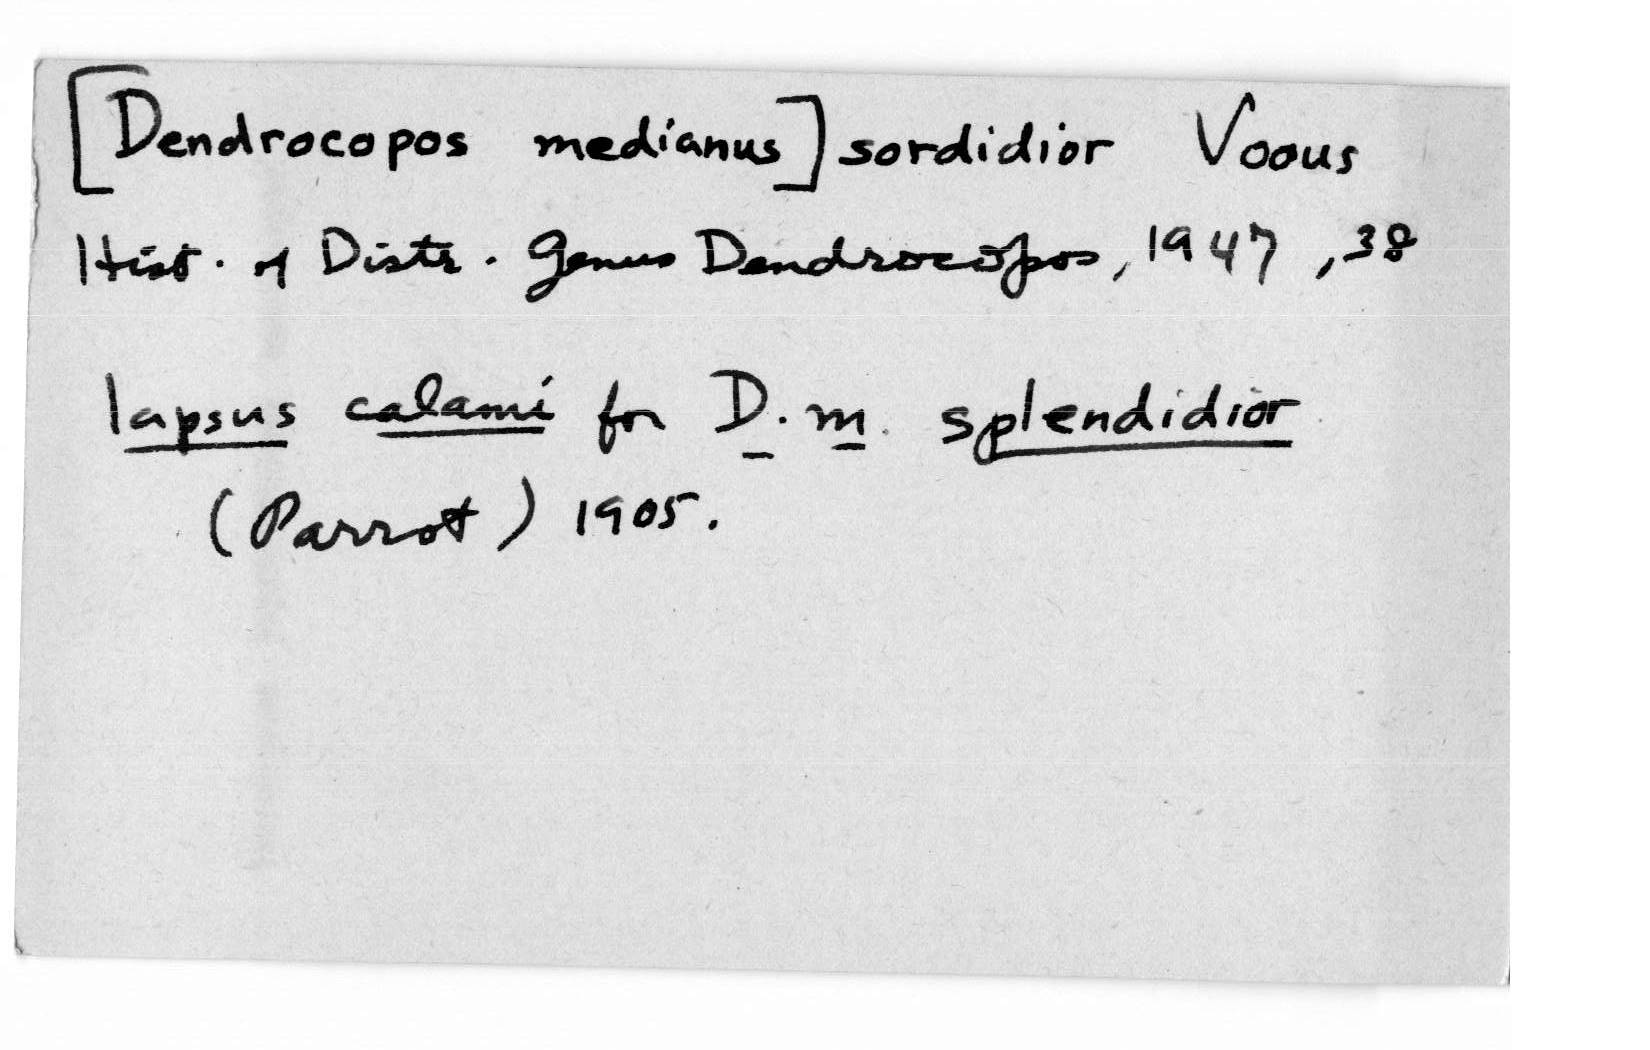 [Dendrocopos medianus] sordidior Voous
Hist. of Distr. Genus Dendrocopos, 1947, 38
lapsus calami for D. m. splendidior
(Parrot) 1905.